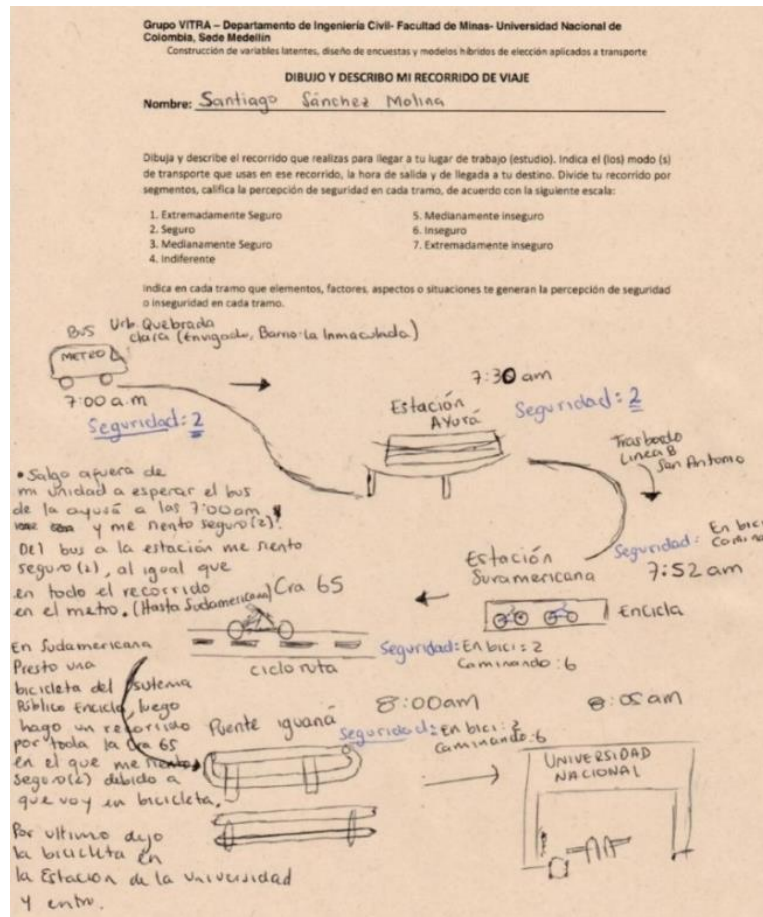 Grupo VITRA – Departamento de Ingeniería Civil- Facultad de Minas- Universidad Nacional de
Colombia, Sede Medellín
Construcción de variables latentes, diseño de encuestas y modelos híbridos de elección aplicados a transporte
DIBUJO Y DESCRIBO MI RECORRIDO DE VIAJE
Nombre: Santiago Sánchez Molina
Dibuja y describe el recorrido que realizas para llegar a tu lugar de trabajo (estudio). Indica el (los) modo (s)
de transporte que usas en ese recorrido, la hora de salida y de llegada a tu destino. Divide tu recorrido por
segmentos, califica la percepción de seguridad en cada tramo, de acuerdo con la siguiente escala:
1. Extremadamente Seguro
2. Seguro
3. Medianamente Seguro
4. Indiferente
5. Medianamente inseguro
6. Inseguro
7. Extremadamente inseguro
Indica en cada tramo que elementos, factores, aspectos o situaciones te generan la percepción de seguridad
o inseguridad en cada tramo.
BUS Urb. Quebrada
clara (Envigado, Barrio: La Inmaculada)
METRO
7:00 a.m
Seguridad: 2
7:30 am
Estación
Ayurá
Seguridad: 2
Trasbordo
Linea B
San Antonio
• Salgo afuera de
mi unidad a esperar el bus
de la ayurá a las 7:00am
y me siento seguro (2).
Del bus a la estación me siento
seguro (2), al igual que
en todo el recorrido
en el metro. (Hasta Sudamericana)
Estación
Suramericana
Seguridad: En bici
7:52 am
EnCicla
Cra 65
ciclo ruta
Seguridad: En bici: 2
Caminando: 6
En Sudamericana
Presto una
bicicleta del sistema
Público Encicla, luego
hago un recorrido
por toda la Cra 65
en el que me siento
seguro (2) debido a
que voy en bicicleta.
Por ultimo dejo
la bicicleta en
la Estacion de la universidad
y entro.
Puente iguaná
8:00am
Seguridad: En bici: 2
Caminando: 6
8:05 am
UNIVERSIDAD
NACIONAL